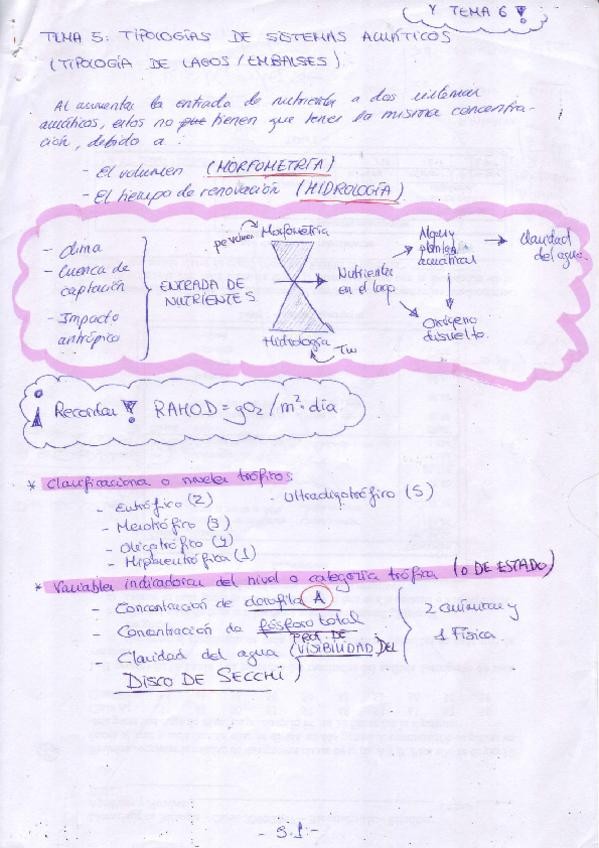 Y TEMA 6 !
TEMA 5: TIPOLOGÍAS DE SISTEMAS ACUÁTICOS
(TIPOLOGÍA DE LAGOS / EMBALSES).
Al aumentar la entrada de nutrientes a dos sistemas
acuáticos, estos no tienen que tener la misma concentra-
ción, debido a:
- El volumen (MORFOMETRÍA)
- El tiempo de renovación (HIDROLOGÍA)
- Clima
- Cuenca de
captación
- Impacto
antrópico
ENTRADA DE
NUTRIENTES
Morfometría
Hidrología
Tw
Nutrientes
en el lago
Algas y
plantas
acuáticas
Claridad
del agua.
Oxígeno
disuelto.
¡Recordar! RAHOD = gO2/m2·día
* Clasificaciones o niveles tróficos
- Eutrófico (2)
- Mesotrófico (3)
- Oligotrófico (4)
- Hipereutrófico (1)
- Ultraoligotrófico (5)
* Variables indicadoras del nivel o categoría trófica (O DE ESTADO)
- Concentración de clorofila A
- Concentración de fósforo total
- Claridad del agua (PROF. DE VISIBILIDAD DEL
DISCO DE SECCHI)
2 químicas y
1 Física.
- 5.1 -